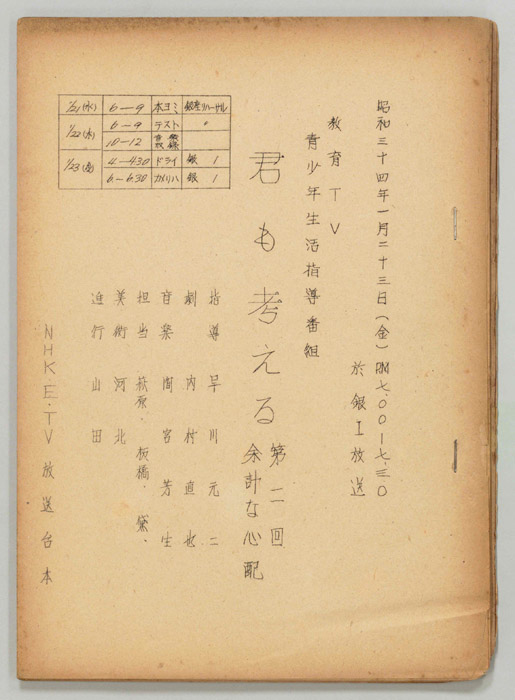 昭和三十四年一月二十三日(金)PM七.00―七.三0
於銀I放送
教育TV
青少年生活指導番組
君も考える
第二回
余計な心配
指導 早川元二
劇 内村直也
音楽 間宮芳生
担当 萩原、板橋、黛、
美術 河北
進行 山田
NHK E.TV 放送台本
1/21(水) 6―9 本ヨミ 銀座リハーサル
1/22(木) 6―9 テスト 〃
10―12 音楽録音
1/23(金) 4―430 ドライ 銀 1
6―6.30 カメリハ 銀 1